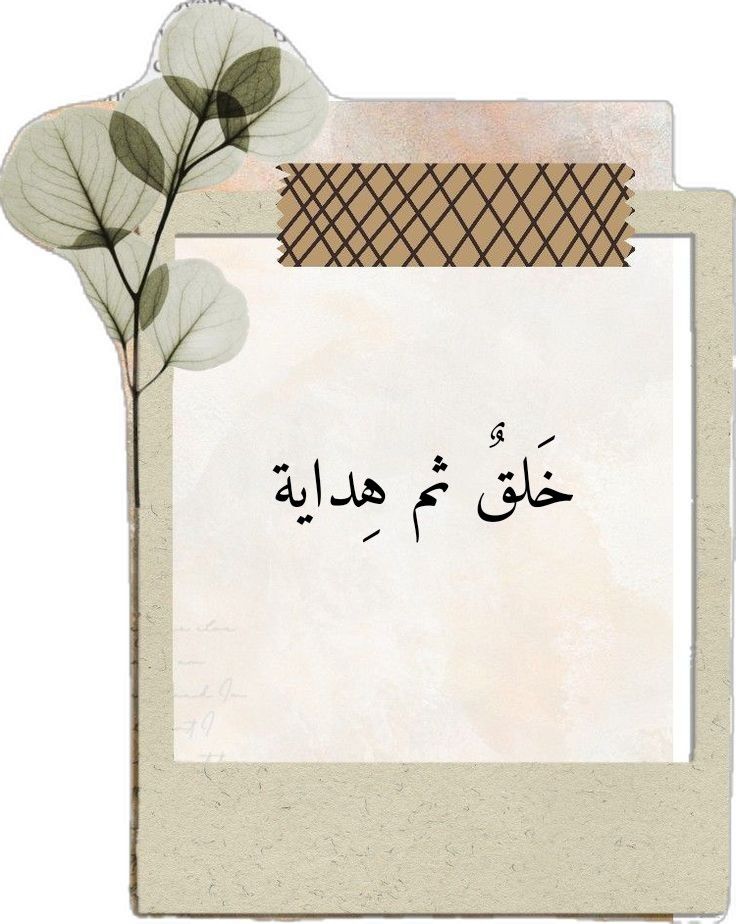 خَلقٌ ثم هِداية